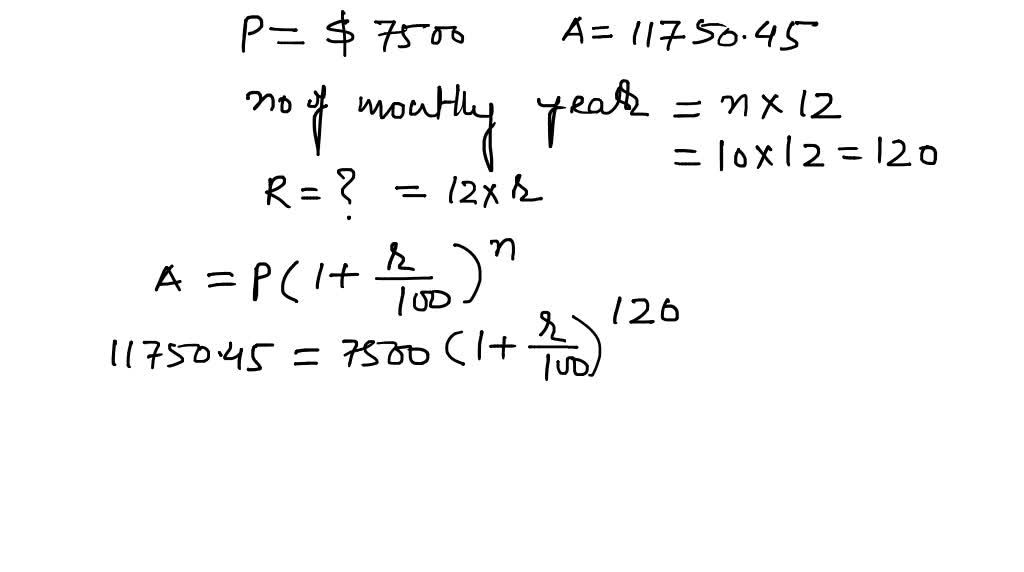 P = $ 7500 A = 11750.45
no of monthly years = n × 12
= 10 × 12 = 120
R = ? = 12 × r
A = P(1 + r/100)^n
11750.45 = 7500 (1 + r/100)^120